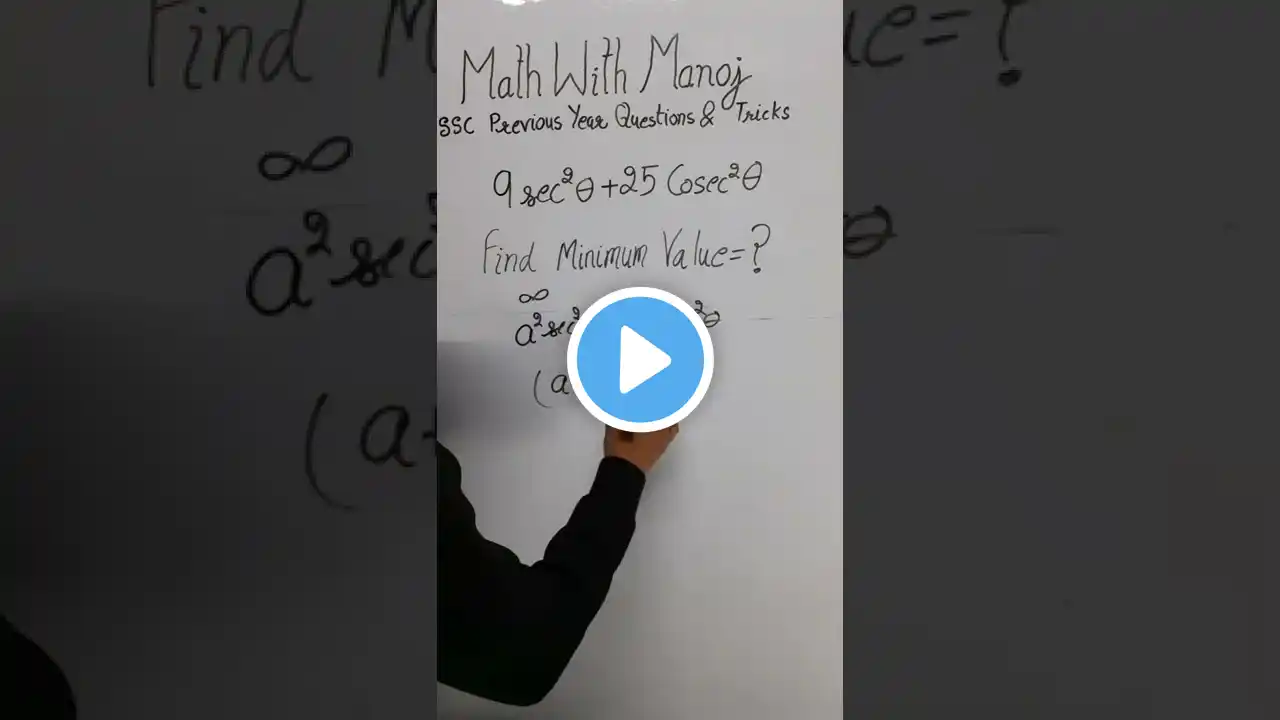 Math With Manoj
SSC Previous Year Questions & Tricks
9 sec²θ + 25 Cosec²θ
Find Minimum Value = ?
∞
a² sec² ²θ
(a